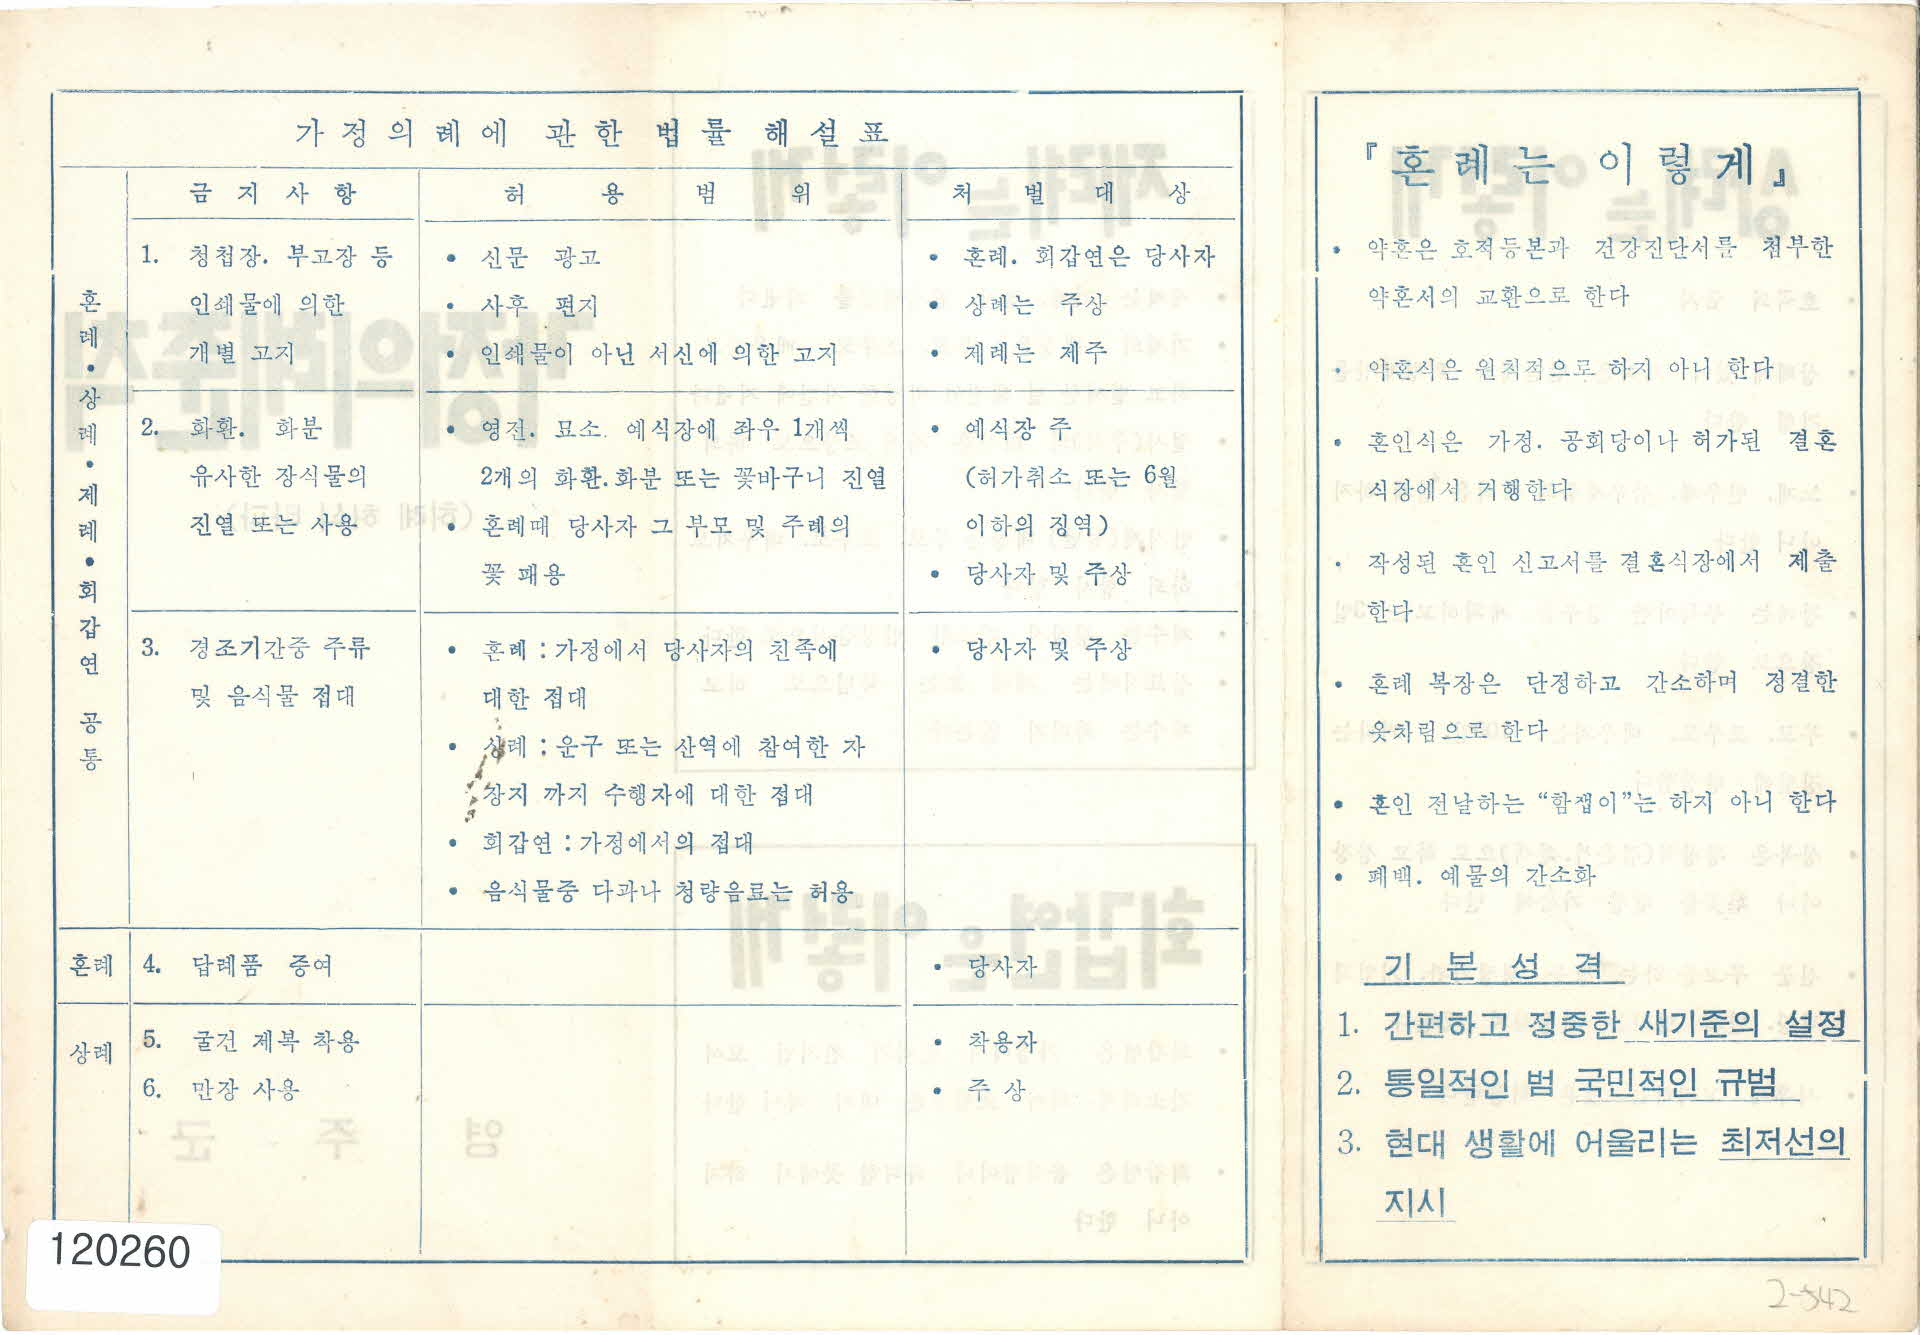 가정의례에 관한 법률 해설표
금지사항 허용범위 처벌대상
혼례•상례•제례•회갑연 공통
1. 청첩장. 부고장 등
인쇄물에 의한
개별 고지
• 신문 광고
• 사후 편지
• 인쇄물이 아닌 서신에 의한 고지
• 혼례. 회갑연은 당사자
• 상례는 주상
• 제례는 제주
2. 화환. 화분
유사한 장식물의
진열 또는 사용
• 영전. 묘소. 예식장에 좌우 1개씩
2개의 화환.화분 또는 꽃바구니 진열
• 혼례때 당사자 그 부모 및 주례의
꽃 패용
• 예식장 주
(허가취소 또는 6월
이하의 징역)
• 당사자 및 주상
3. 경조기간중 주류
및 음식물 접대
• 혼례 : 가정에서 당사자의 친족에
대한 접대
• 상례 : 운구 또는 산역에 참여한 자
장지 까지 수행자에 대한 접대
• 회갑연 : 가정에서의 접대
• 음식물중 다과나 청량음료는 허용
• 당사자 및 주상
혼례
4. 답례품 증여
• 당사자
상례
5. 굴건 제복 착용
6. 만장 사용
• 착용자
• 주 상
『혼례는 이렇게』
• 약혼은 호적등본과 건강진단서를 첨부한
약혼서의 교환으로 한다
• 약혼식은 원칙적으로 하지 아니 한다
• 혼인식은 가정. 공회당이나 허가된 결혼
식장에서 거행한다
• 작성된 혼인 신고서를 결혼식장에서 제출
한다
• 혼례 복장은 단정하고 간소하며 정결한
옷차림으로 한다
• 혼인 전날하는 “함잽이”는 하지 아니 한다
• 폐백. 예물의 간소화
기본성격
1. 간편하고 정중한 새기준의 설정
2. 통일적인 범 국민적인 규범
3. 현대 생활에 어울리는 최저선의
지시
120260
2-542